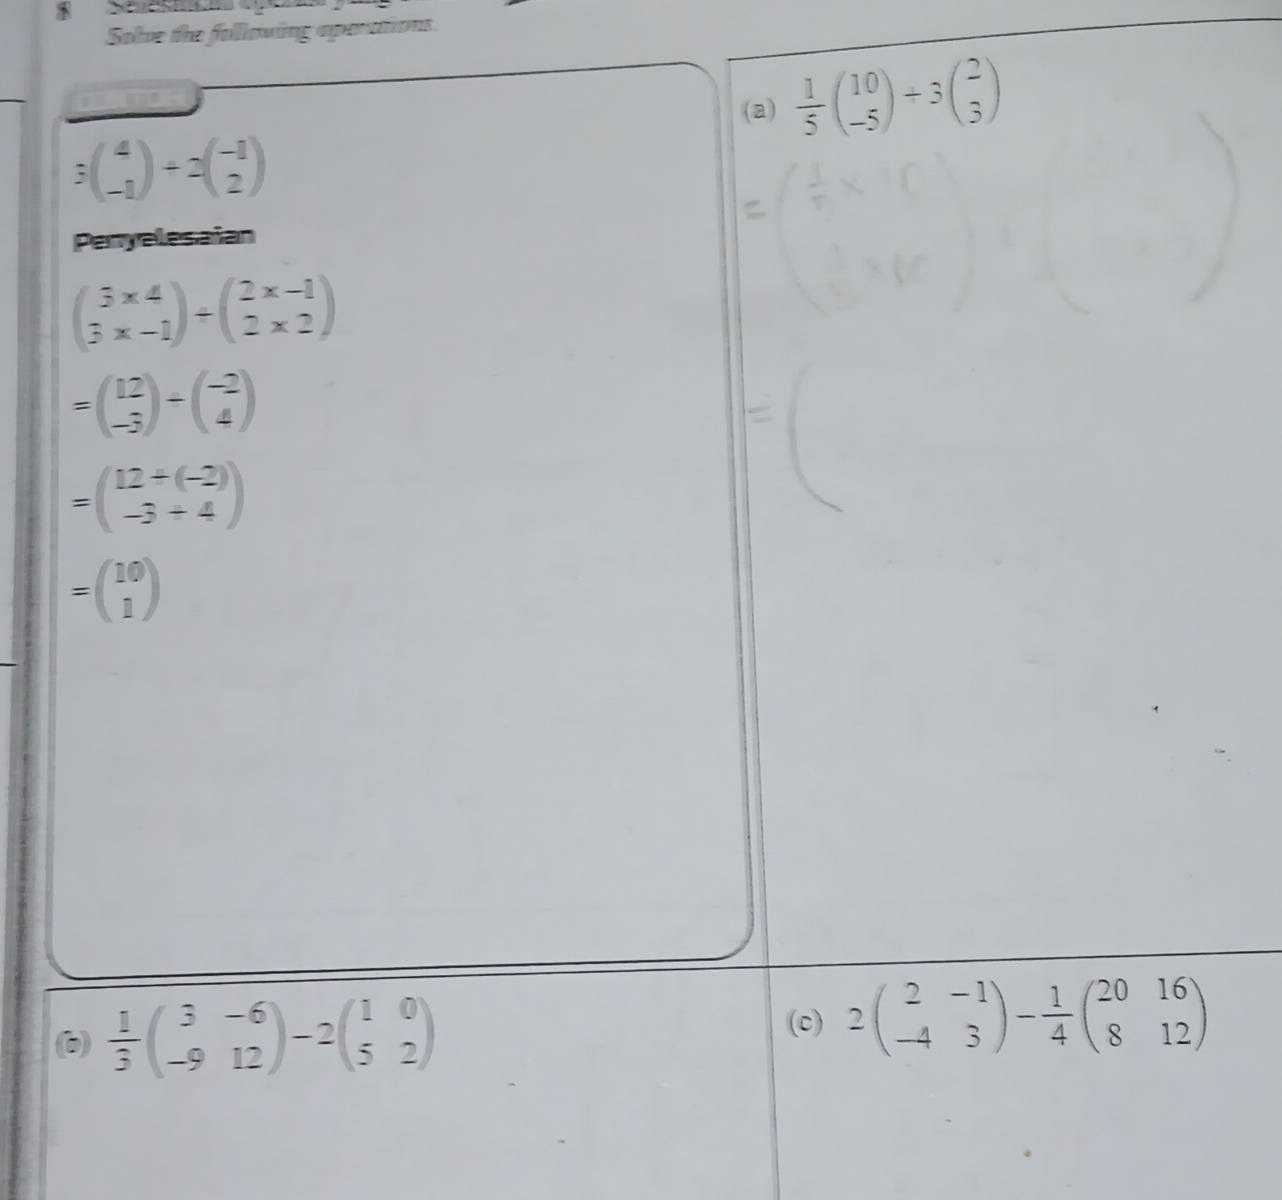 8
Solve the following operations.
3(4 -1) + 2(-1 2)
Penyelesaian
(3 × 4 3 × -1) + (2 × -1 2 × 2)
= (12 -3) + (-2 4)
= (12 + (-2) -3 + 4)
= (10 1)
(a) 1/5 (10 -5) + 3 (2 3)
= (1/5 × 10
= (
(b) 1/3 (3 -6 -9 12) - 2 (1 0 5 2)
(c) 2 (2 -1 -4 3) - 1/4 (20 16 8 12)